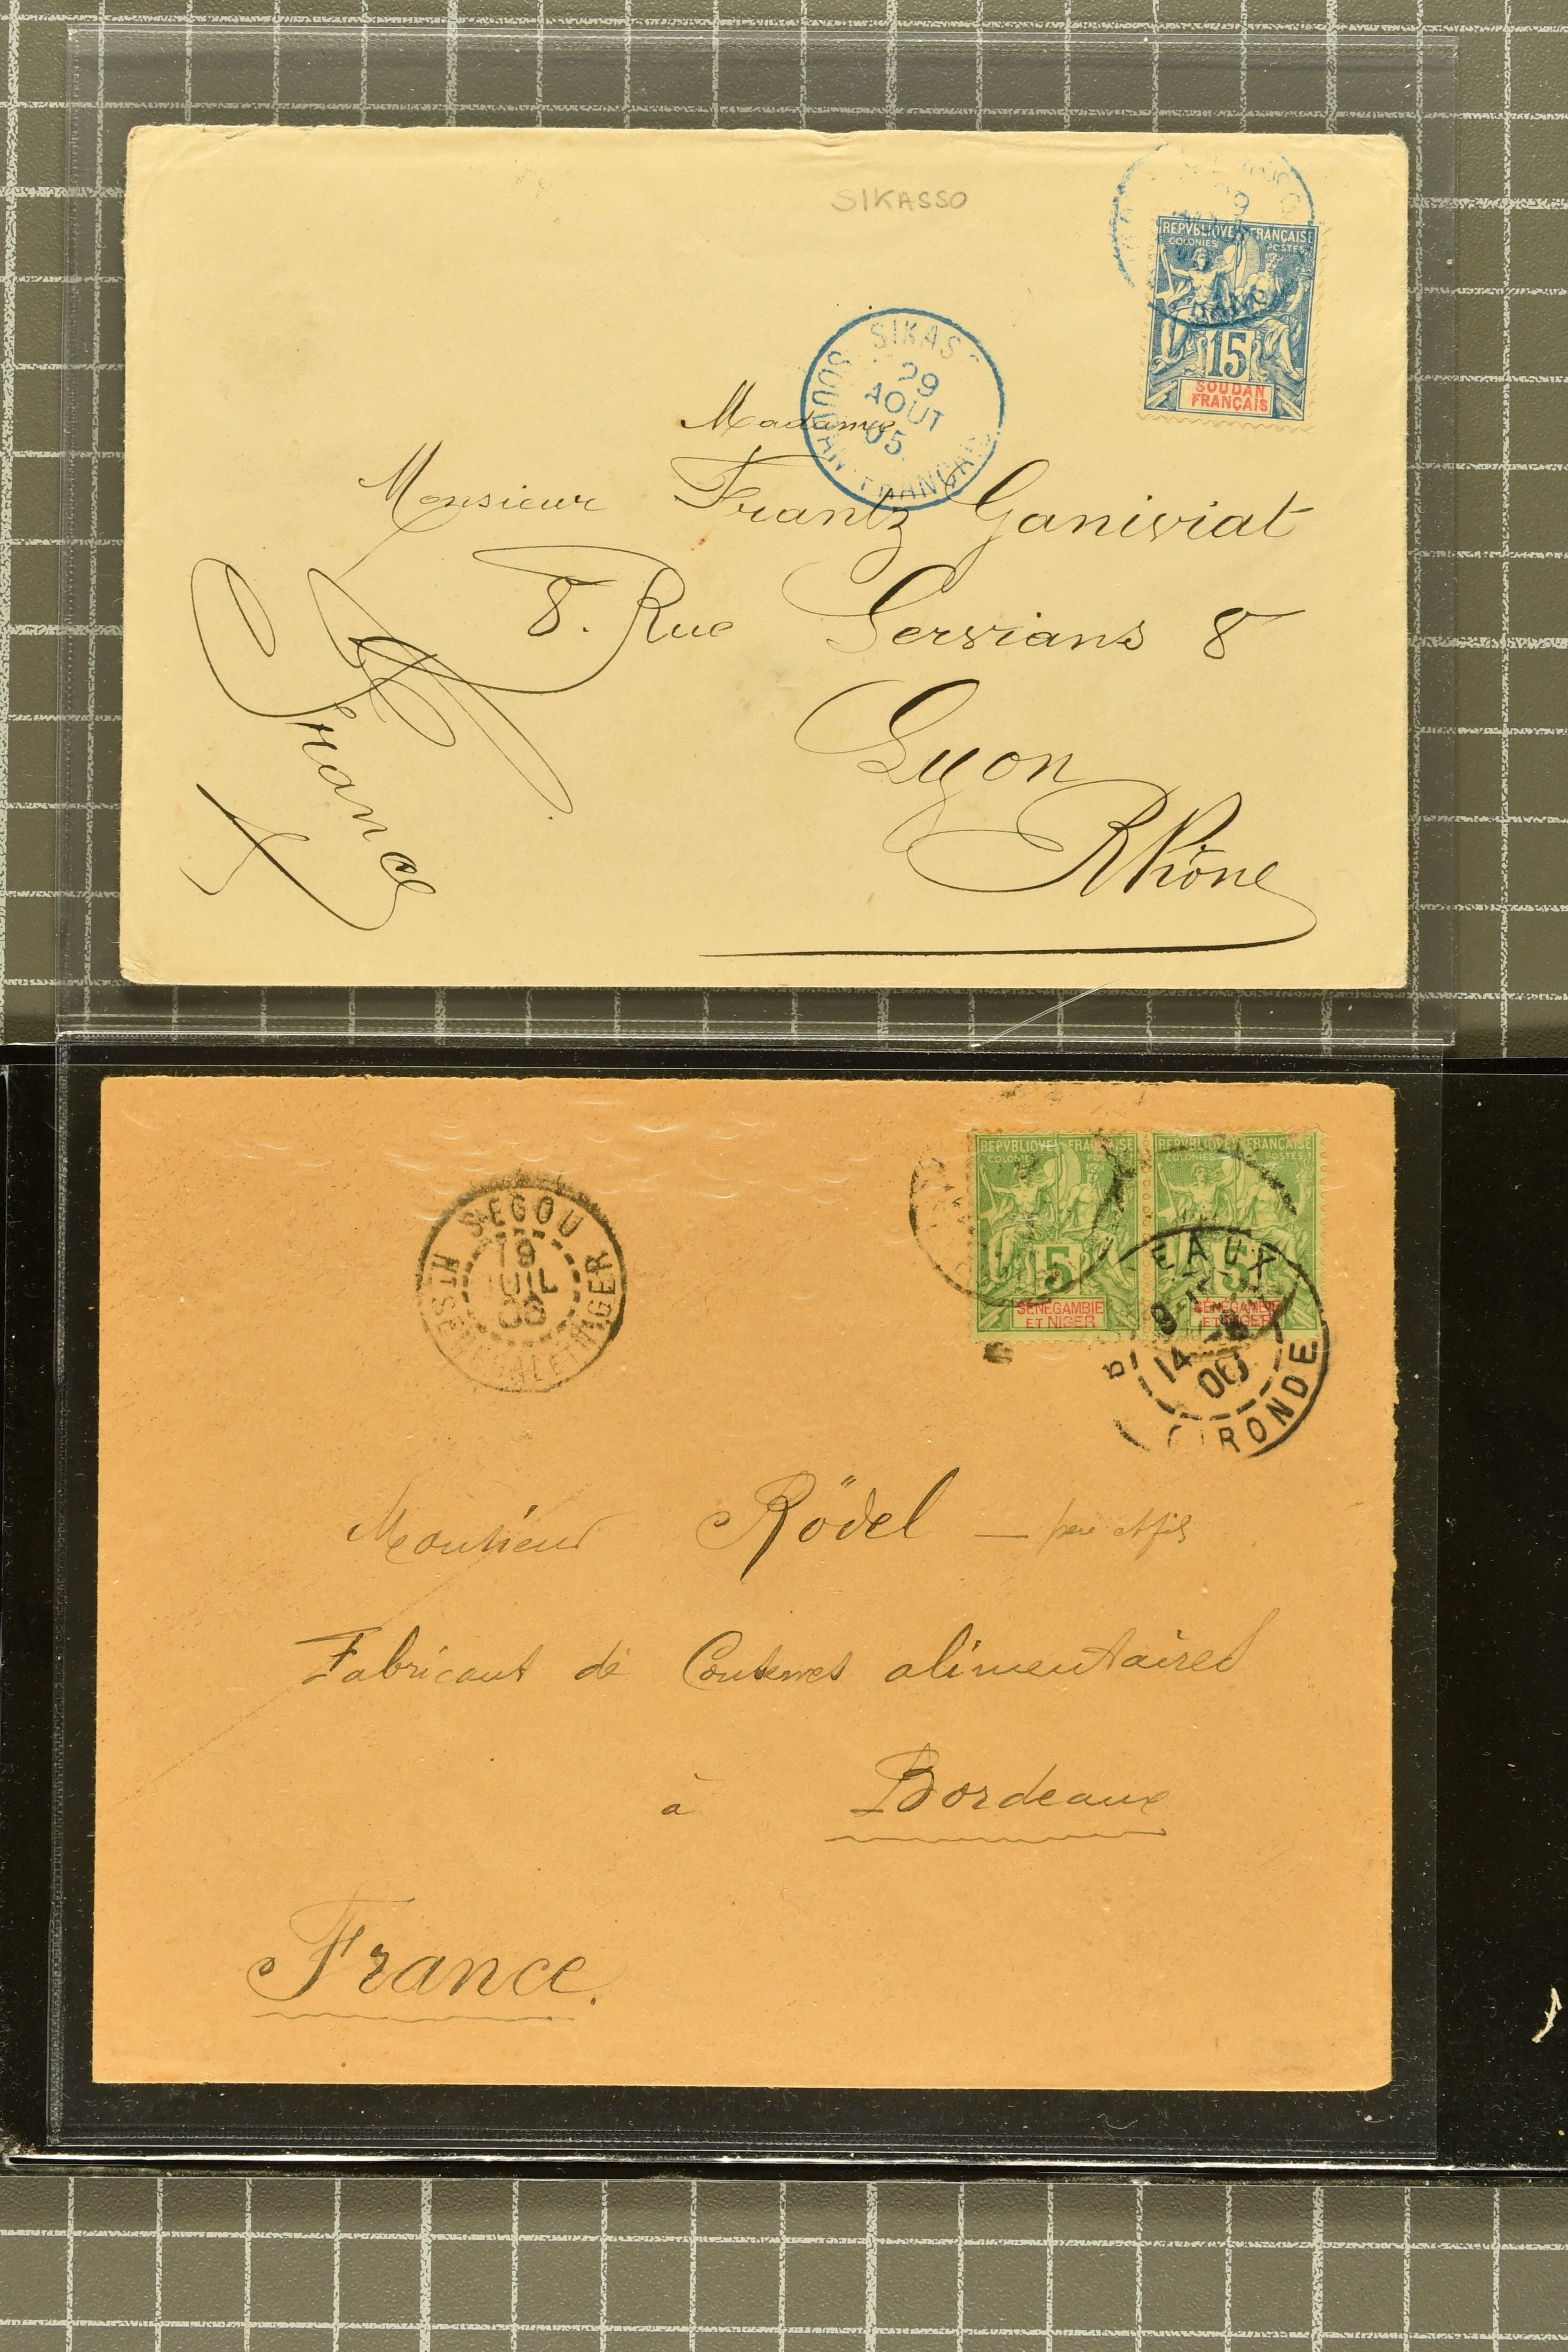 SIKASSO
REPVBLIQVE FRANÇAISE
COLONIES POSTES
15
SOUDAN
FRANÇAIS
SIKAS
29
AOUT
05
SOUDAN FRANÇAIS
Madame
Monsieur Frantz Ganiviat
8. Rue Servians 8
Lyon
Rhône
France
SEGOU
19
JUIL
06
HT SENEGAL ET NIGER
REPVBLIQVE FRANÇAISE
COLONIES
5
SÉNÉGAMBIE
ET NIGER
REPVBLIQVE FRANÇAISE
COLONIES POSTES
5
SÉNÉGAMBIE
ET NIGER
B EAUX
14
06
GIRONDE
Monsieur Rödel — père et fils
Fabricant de Conserves alimentaires
à Bordeaux
France.